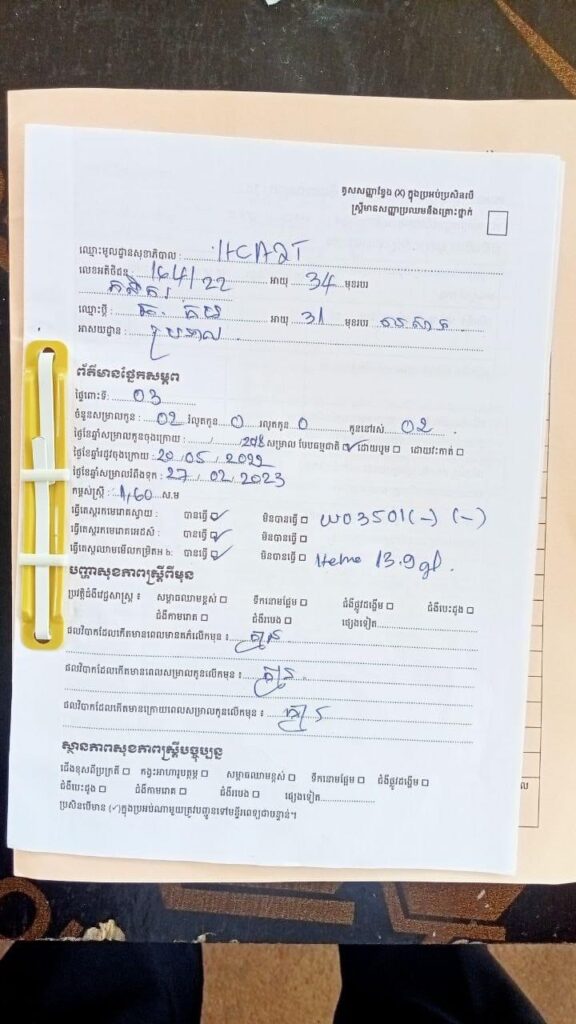 គូសសញ្ញាខ្វែង (X) ក្នុងប្រអប់ប្រសិនបើ
ស្ត្រីមានសញ្ញាប្រឈមនឹងគ្រោះថ្នាក់
ឈ្មោះមូលដ្ឋានសុខាភិបាល :
លេខអតិថិជន : 164/22 អាយុ 34 មុខរបរ
ឈ្មោះប្តី : អាយុ 31 មុខរបរ
អាសយដ្ឋាន :
ព័ត៌មានផ្នែកសម្ភព
ថ្ងៃពោះទី: 03
ចំនួនសម្រាលកូន : 02 រំលូតកូន 0 រលូតកូន 0 កូននៅរស់ 02
ថ្ងៃខែឆ្នាំសម្រាលកូនចុងក្រោយ : / / សម្រាល បែបធម្មជាតិ ☑ ដោយបូម ☐ ដោយវះកាត់ ☐
ថ្ងៃខែឆ្នាំរដូវចុងក្រោយ : 20 / 05 / 2022
ថ្ងៃខែឆ្នាំសម្រាលរំពឹងទុក : 27 / 02 / 2023
កម្ពស់ស្ត្រី : 1,60 ស.ម
ធ្វើតេស្តរកមេរោគស្វាយ : បានធ្វើ ☑ មិនបានធ្វើ ☐ W03501 (-) (-)
ធ្វើតេស្តរកមេរោគអេដស៍ : បានធ្វើ ☑ មិនបានធ្វើ ☐
ធ្វើតេស្តឈាមមើលកម្រិតអ b: បានធ្វើ ☑ មិនបានធ្វើ ☐ Heme 13.9 gl.
បញ្ហាសុខភាពស្ត្រីពីមុន
ប្រវត្តិជំងឺវេជ្ជសាស្ត្រ : សម្ពាធឈាមខ្ពស់ ☐ ទឹកនោមផ្អែម ☐ ជំងឺផ្លូវដង្ហើម ☐ ជំងឺបេះដូង ☐
ជំងឺកាមរោគ ☐ ជំងឺរបេង ☐ ផ្សេងទៀត
ផលវិបាកដែលកើតមានពេលមានគភ៌លើកមុន : គ្មាន
ផលវិបាកដែលកើតមានពេលសម្រាលកូនលើកមុន : គ្មាន
ផលវិបាកដែលកើតមានក្រោយពេលសម្រាលកូនលើកមុន : គ្មាន
ស្ថានភាពសុខភាពស្ត្រីបច្ចុប្បន្ន
ជើងខុសពីប្រក្រតី ☐ កង្វះអាហារូបត្ថម្ភ ☐ សម្ពាធឈាមខ្ពស់ ☐ ទឹកនោមផ្អែម ☐ ជំងឺផ្លូវដង្ហើម ☐
ជំងឺបេះដូង ☐ ជំងឺកាមរោគ ☐ ជំងឺរបេង ☐ ផ្សេងទៀត
ប្រសិនបើមាន (✓) ក្នុងប្រអប់ណាមួយត្រូវបញ្ជូនទៅមន្ទីរពេទ្យជាបន្ទាន់។